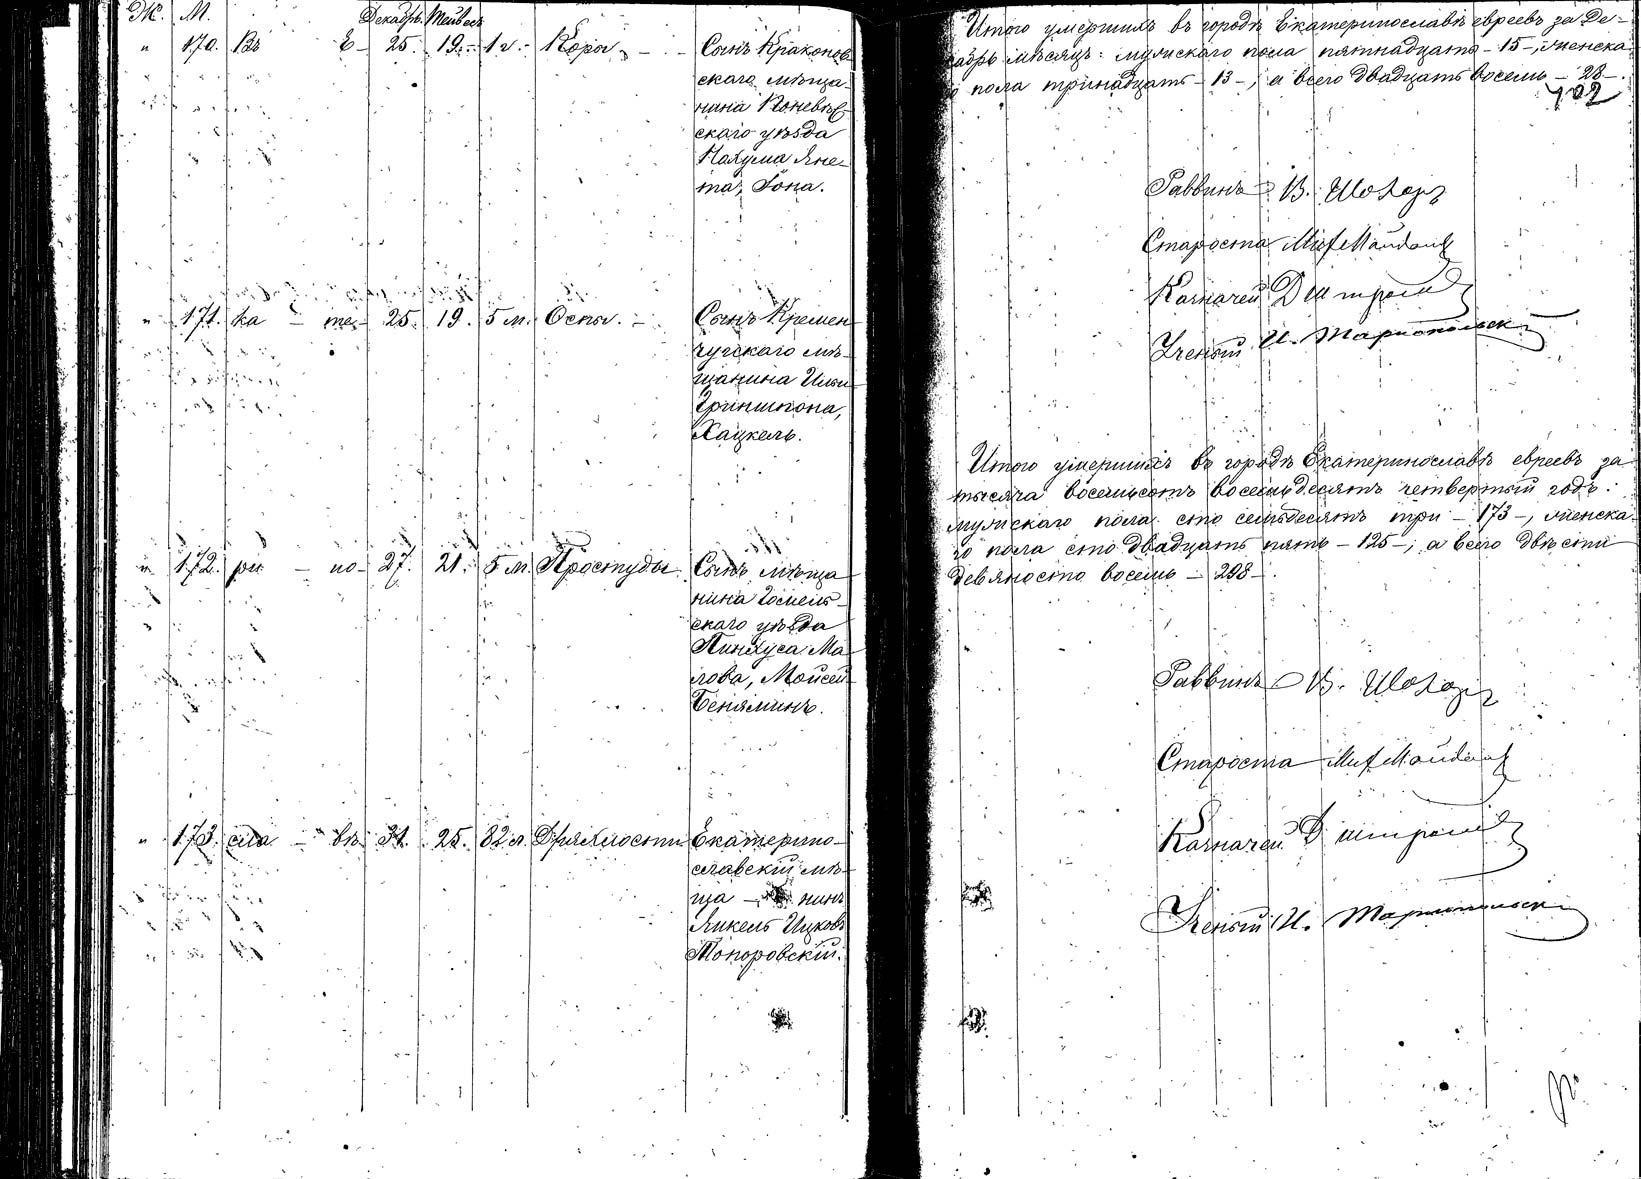 Ж. М. Декабр. Тейвес
" 170. Въ Е- 25. 19. 1 г. Кори - Сынъ Краконов
скаго мѣща-
нина Поневѣж
скаго уѣзда
Нахума Яне-
та, Іона.
" 171. ка - те- 25. 19. 5 м. Оспы. - Сынъ Кремен
чугскаго мѣ-
щанина Ильи
Гриншпона,
Хацкель.
" 172. ри - но- 27. 21. 5 м. Простуды Сынъ мѣща
нина Гомель-
скаго уѣзда
Пинхуса Ма
лова, Мойсей
Бениаминъ.
" 173. сла - вѣ 31. 25. 82 л. Дряхлости Екатерино-
славскій мѣ-
ща - нинъ
Янкель Ицковъ
Топоровскій.
Итого умершихъ въ городѣ Екатеринославѣ евреевъ за де-
кабрь мѣсяцъ: мужскаго пола пятнадцать - 15 -, женска
го пола тринадцать - 13 -, а всего двадцать восемь - 28 -.
702
Раввинъ В. Шохоръ
Староста Майданс
Казначей Д
Ученый И. Тарнопольскі
Итого умершихъ въ городѣ Екатеринославѣ евреевъ за
тысяча восемьсотъ восемьдесятъ четвертый годъ:
мужскаго пола сто семьдесятъ три - 173 -, женска-
го пола сто двадцать пять - 125 -, а всего двѣсти
девяносто восемь - 298 -.
Раввинъ В. Шохоръ
Староста Майданс
Казначей Д
Ученый И. Тарнопольскі